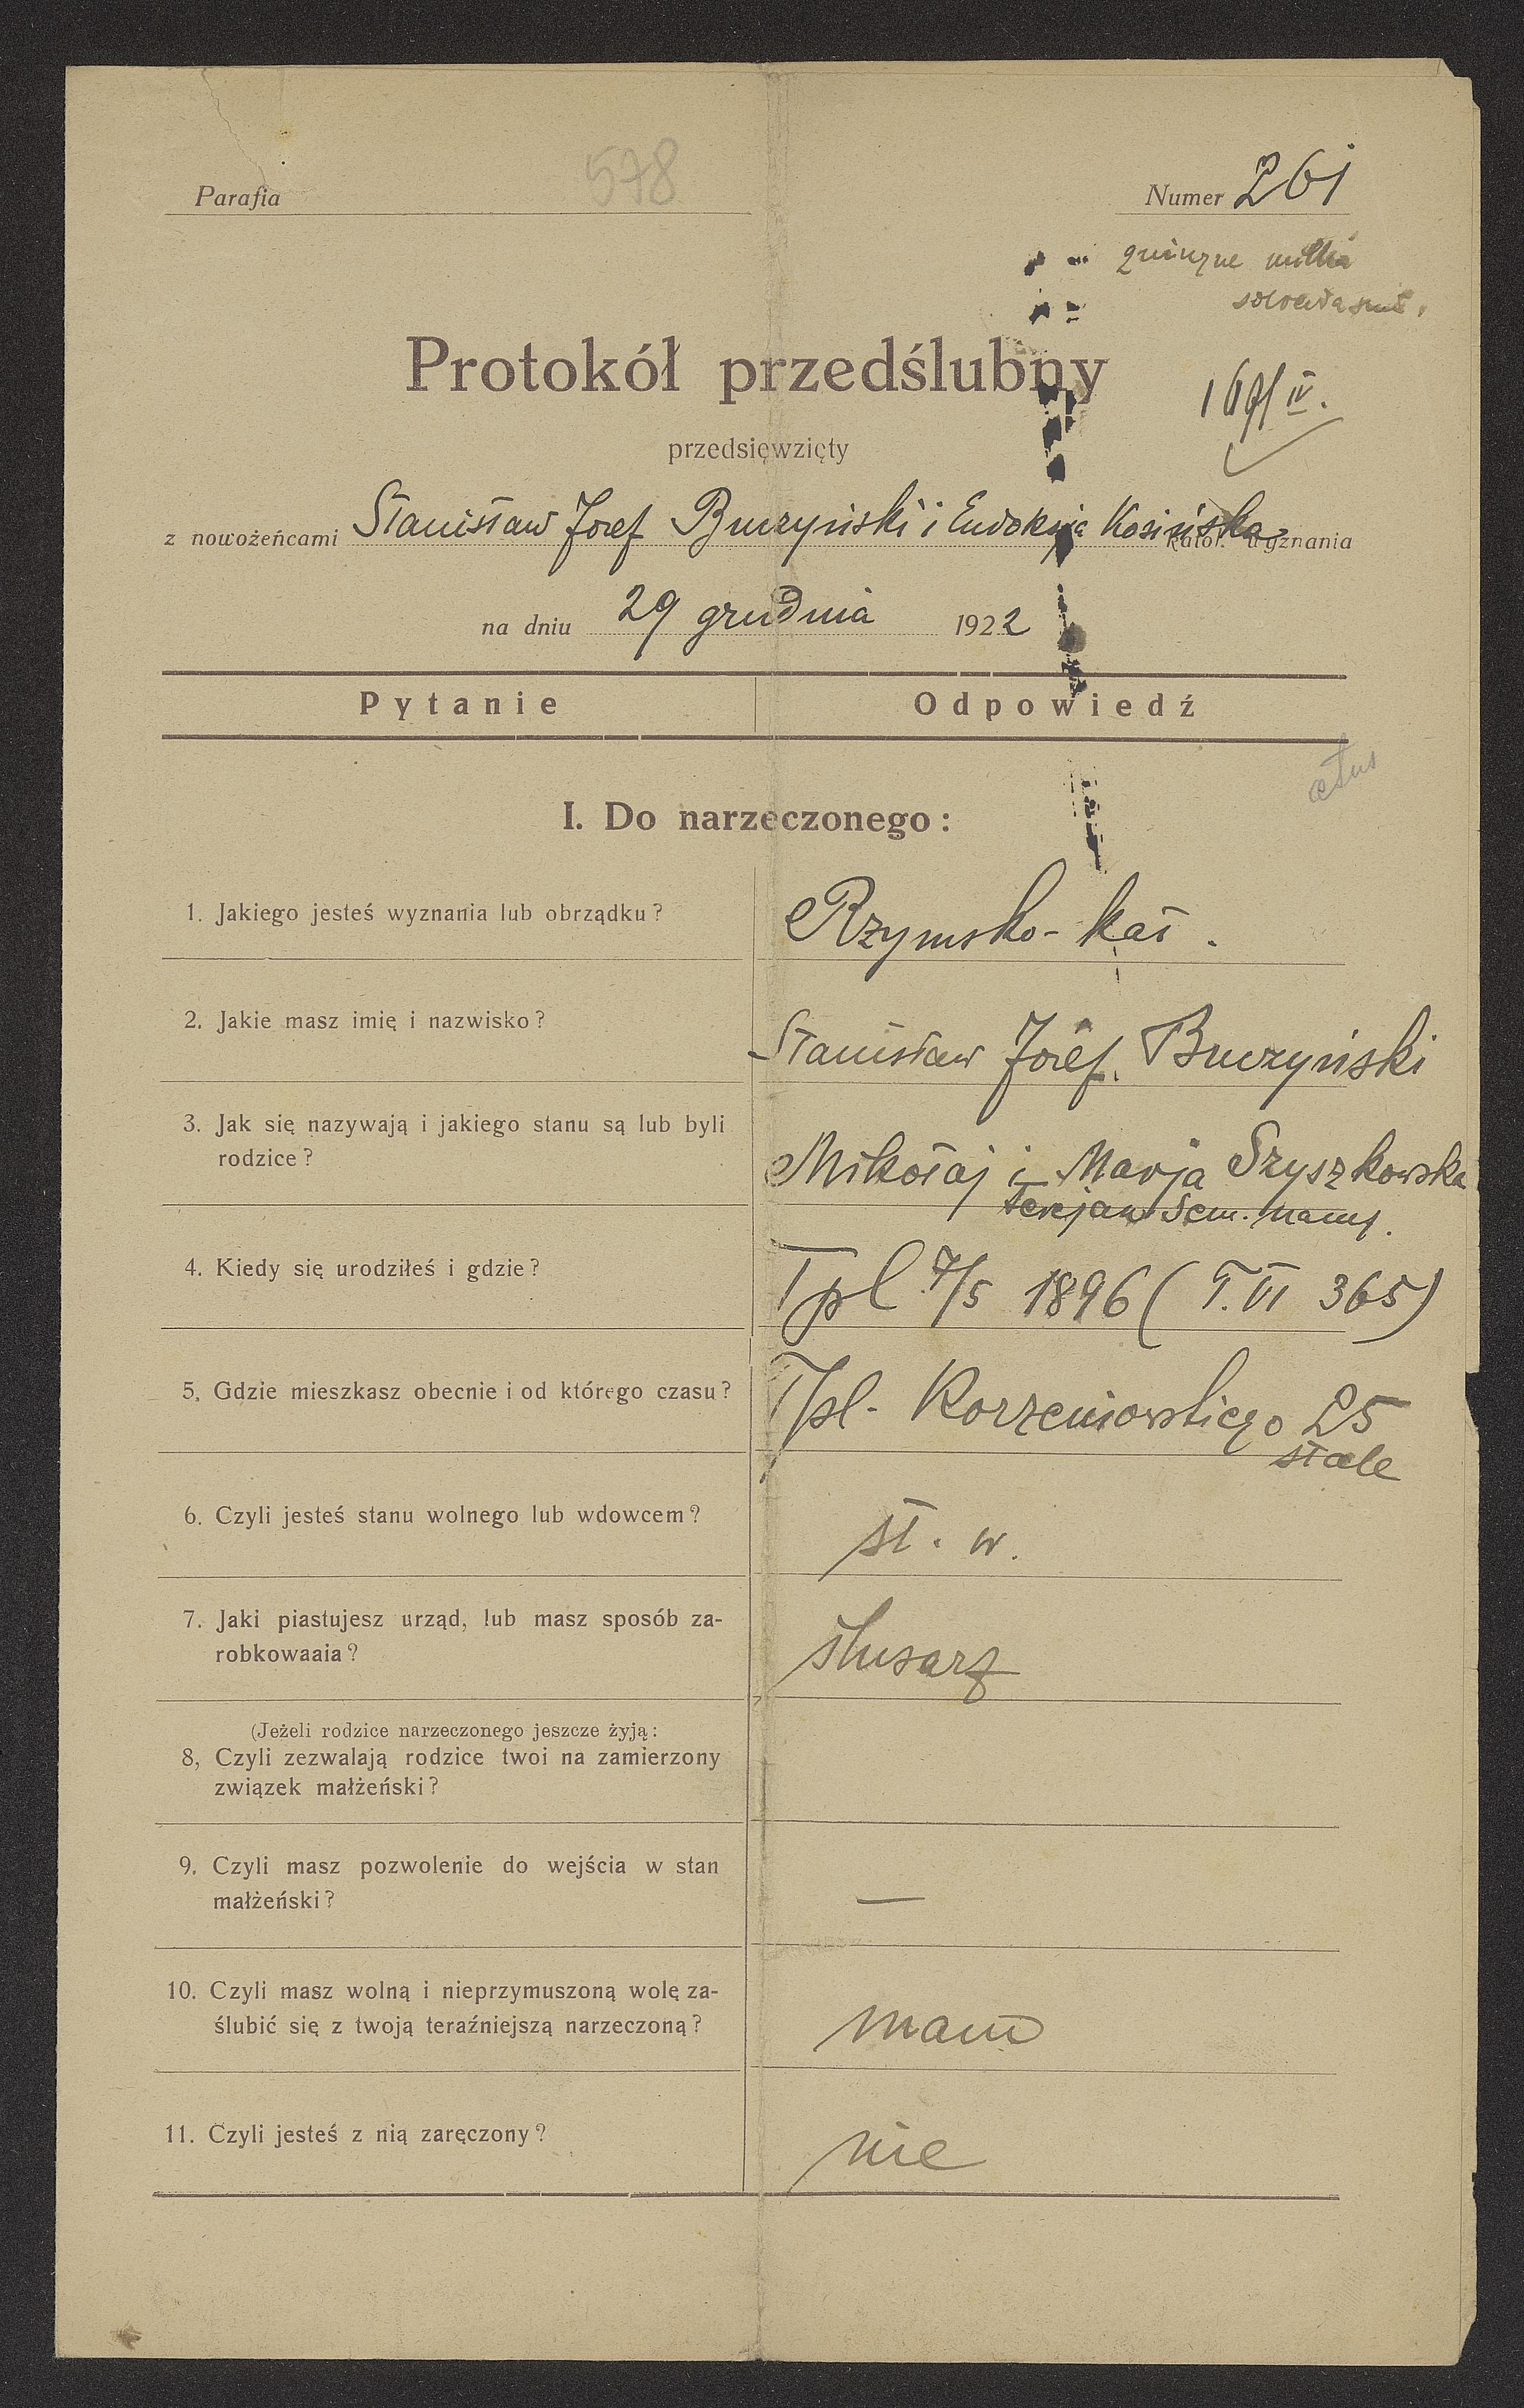 578
Parafia
Numer 261
quinque millia
169/IV.
Protokół przedślubny
przedsięwzięty
z nowożeńcami Stanisław Józef Buczyński i Eudoksja Kosińska katol. wyznania
na dniu 29 grudnia 1922
Pytanie Odpowiedź
I. Do narzeczonego:
1. Jakiego jesteś wyznania lub obrządku? Rzymsko-kat.
2. Jakie masz imię i nazwisko? Stanisław Józef Buczyński
3. Jak się nazywają i jakiego stanu są lub byli
rodzice? Mikołaj i Marja Szyszkowska
Sem. naucz.
4. Kiedy się urodziłeś i gdzie? Tpl 7/5 1896 (T.VI 365)
5, Gdzie mieszkasz obecnie i od którego czasu? Tpl. Korzeniowskiego 25
stale
6. Czyli jesteś stanu wolnego lub wdowcem? st. w.
7. Jaki piastujesz urząd, lub masz sposób za-
robkowaaia? ślusarz
(Jeżeli rodzice narzeczonego jeszcze żyją:
8, Czyli zezwalają rodzice twoi na zamierzony
związek małżeński?
9. Czyli masz pozwolenie do wejścia w stan
małżeński? —
10. Czyli masz wolną i nieprzymuszoną wolę za-
ślubić się z twoją teraźniejszą narzeczoną? mam
11. Czyli jesteś z nią zaręczony? nie